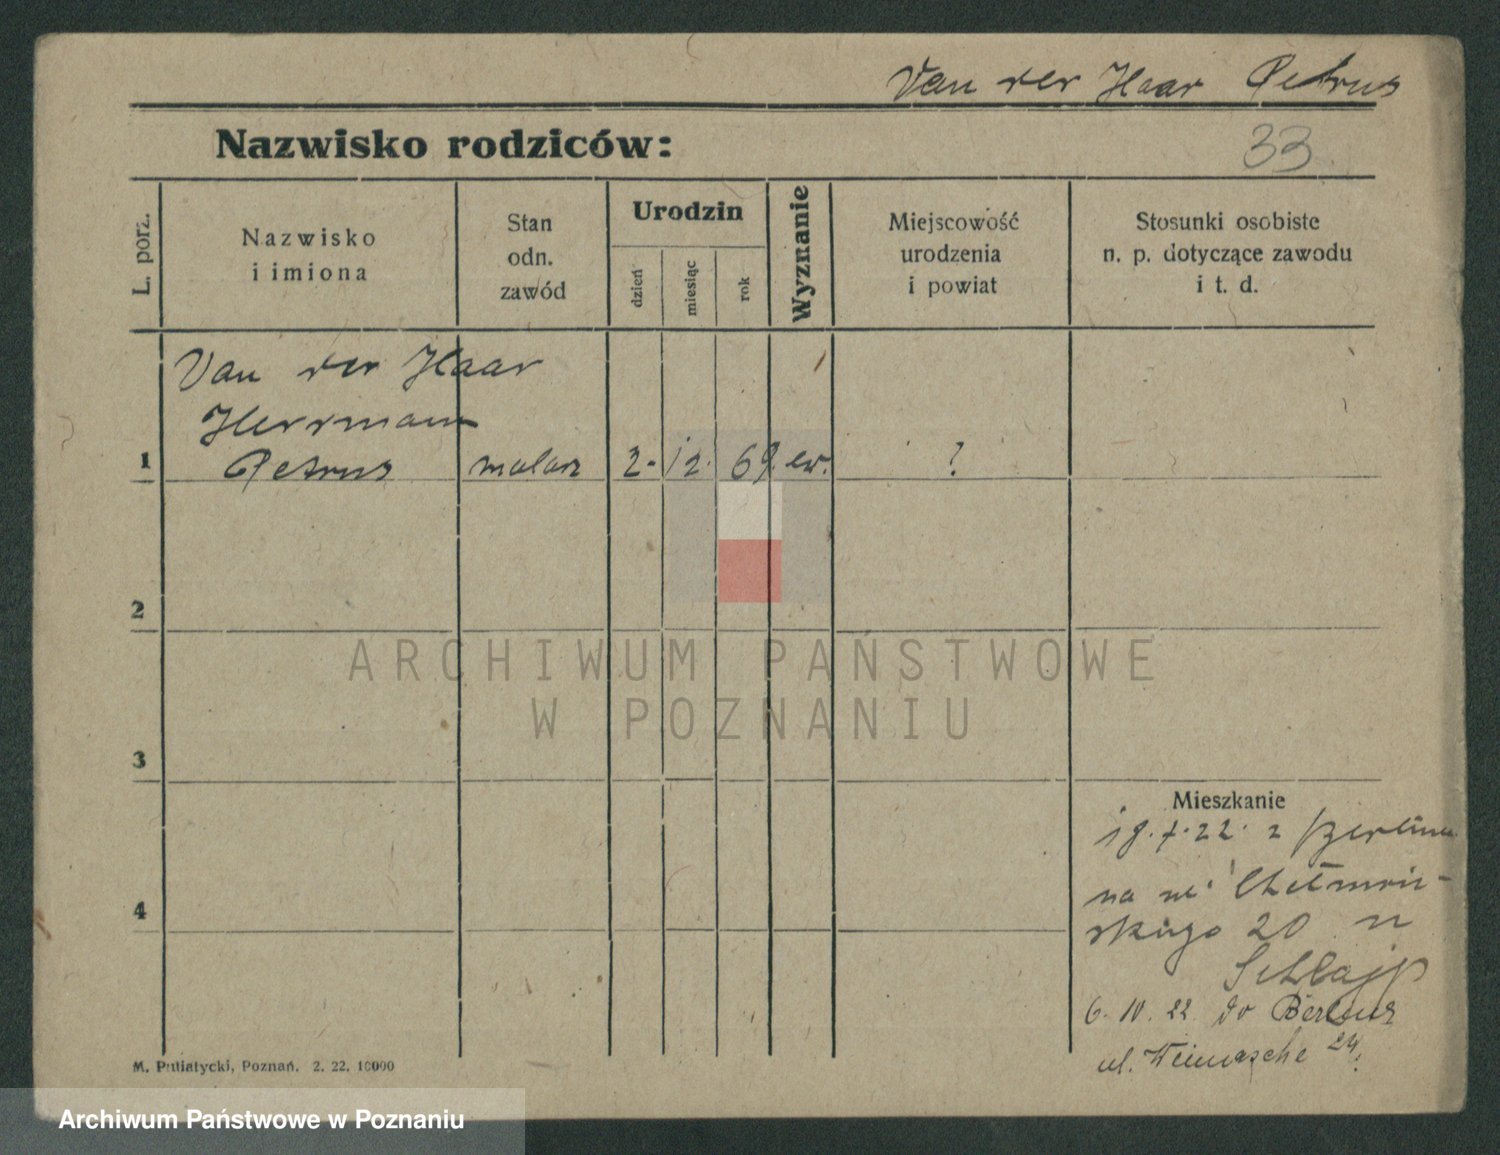 Van der Haar Petrus
Nazwisko rodziców:
33
L. porz.
Nazwisko
i imiona
Stan
odn.
zawód
Urodzin
dzień
miesiąc
rok
Wyznanie
Miejscowość
urodzenia
i powiat
Stosunki osobiste
n. p. dotyczące zawodu
i t. d.
Van der Haar
Herrmann
1 Petrus malarz 2. 12. 69. ew. ?
2
ARCHIWUM PAŃSTWOWE
W POZNANIU
3
Mieszkanie
18.7.22. z Berlina
na ul. Chełmoń-
4
skiego 20 u
6. 10. 22 do Berlina
ul. 24.
M. Putiatycki, Poznań. 2. 22. 10000
Archiwum Państwowe w Poznaniu